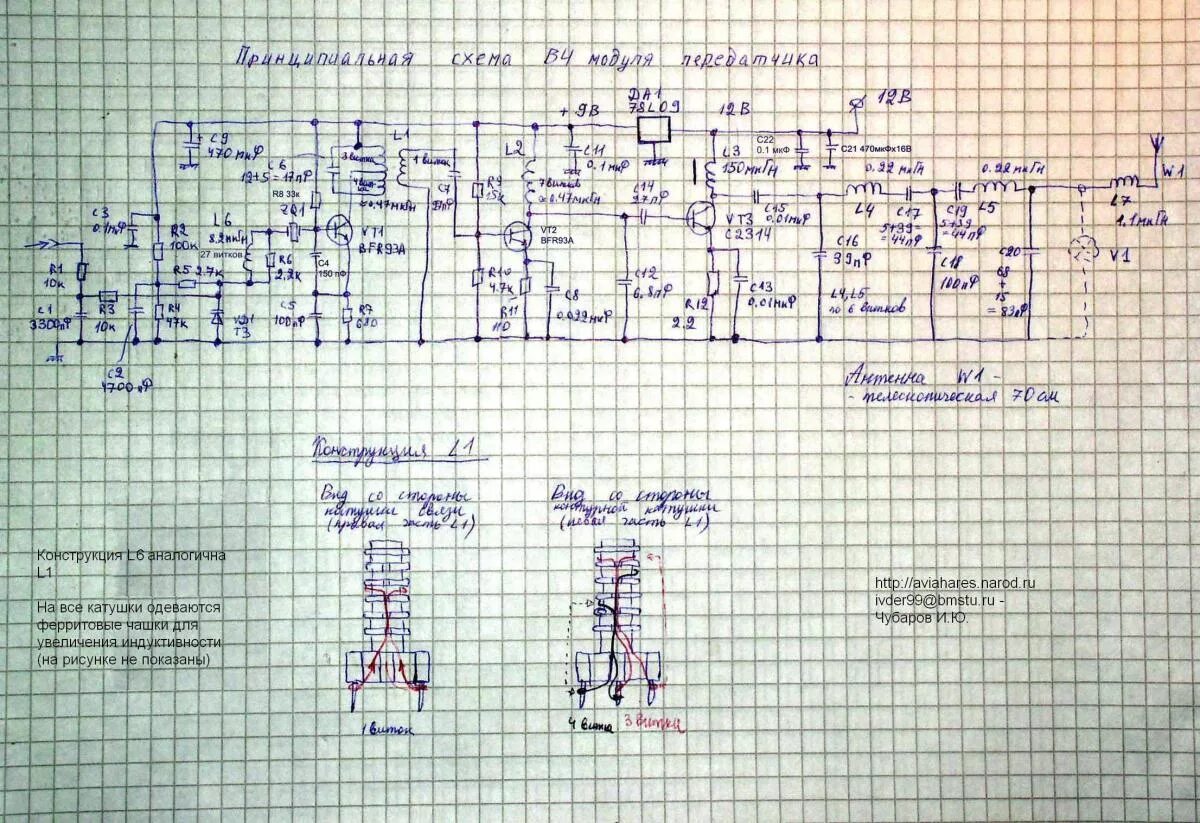 Принципиальная схема ВЧ модуля передатчика
+ 9В
DA1
78L09
12В
12В
C9
470 мкФ
C6
12+5=17пФ
R8 33к
ZQ1
3 витка
L1
1 виток
≈0.47мкГн
C7
R9
15к
L2
7 витков
≈0.47мкГн
C11
0.1мкФ
C14
27пФ
L3
150мкГн
C22
0.1 мкФ
C21 470мкФх16В
C15
0.01мкФ
0.22 мкГн
L4
C17
5+39=
=44пФ
C19
5+39=
=44пФ
0.22 мкГн
L5
W1
L7
1.1мкГн
V1
C3
0.1мкФ
R2
100к
L6
8.2мкГн
27 витков
R6
2.2к
VT1
BFR93A
C4
150 пФ
VT2
BFR93A
VT3
C2314
C16
39пФ
C18
100пФ
C20
68
+
15
=83пФ
R1
10к
C1
3300пФ
R3
10к
R5 2.7к
R4
47к
VD1
ТЗ
C5
100пФ
R7
680
R10
4.7к
R11
110
C8
0.022мкФ
C12
6.8пФ
R12
2.2
C13
0.01мкФ
L4, L5
по 6 витков
C2
4700пФ
Антенна W1 -
- телескопическая 70см
Конструкция L1
Вид со стороны
катушки связи
(правая часть L1)
Вид со стороны
контурной катушки
(левая часть L1)
1 виток
4 витка
3 витка
Конструкция L6 аналогична
L1
На все катушки одеваются
ферритовые чашки для
увеличения индуктивности
(на рисунке не показаны)
http://aviahares.narod.ru
ivder99@bmstu.ru -
Чубаров И.Ю.